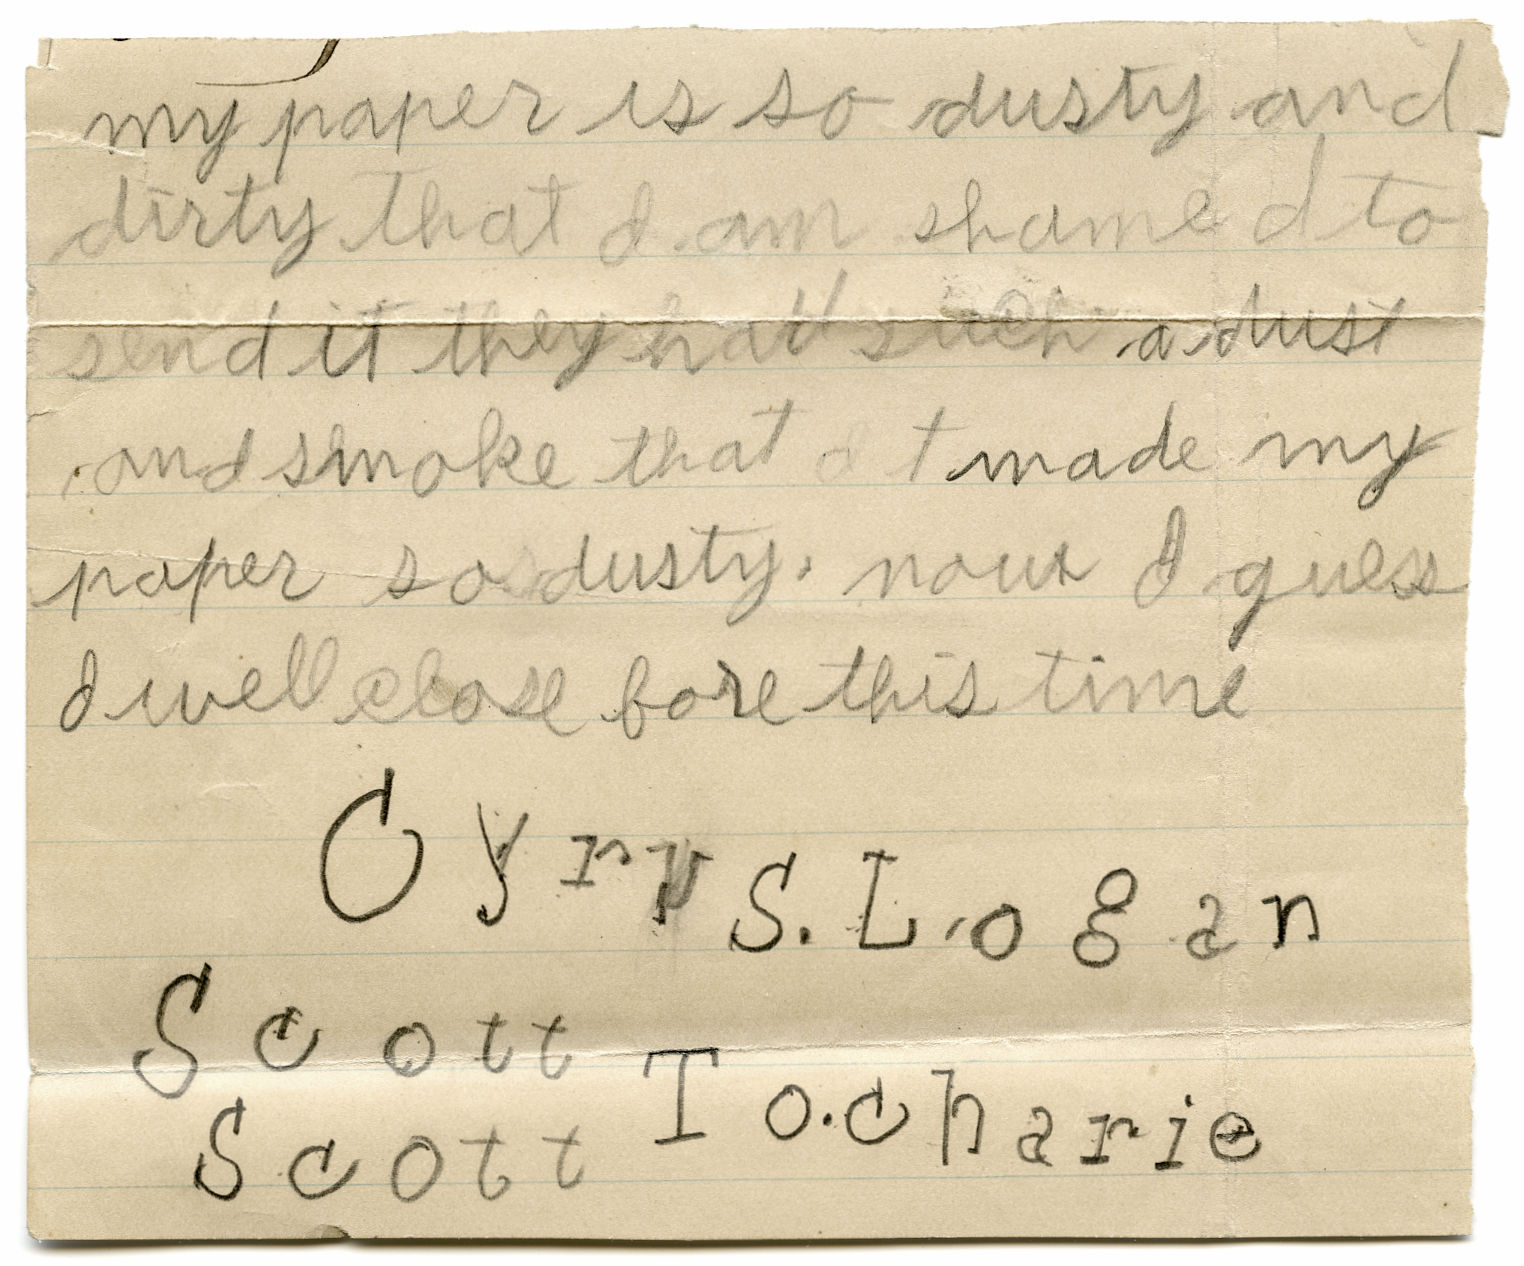 my paper is so dusty and
dirty that I am shamed to
send it they had such a dust
and smoke that it made my
paper so dusty. noux I guess
I well close fore this time
Cyrus. Logan
Scott
Scott To.charie